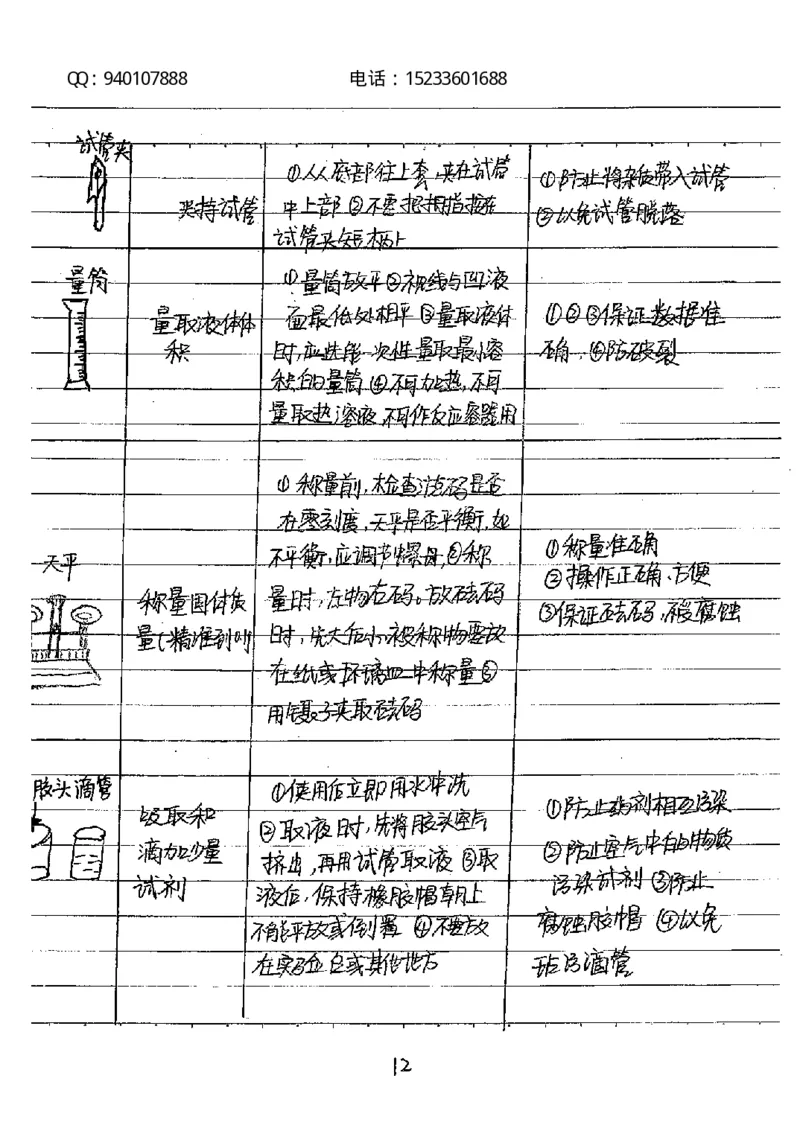 QQ：940107888
电话：15233601688
试管夹
夹持试管
①从底部往上套,夹在试管
中上部 ②不要把拇指按在
试管夹短柄上
①防止将杂质带入试管
②以免试管脱落
量筒
量取液体体
积
①量筒放平②视线与凹液
面最低处相平 ③量取液体
时,应选能一次性量取最小容
积的量筒 ④不可加热,不可
量取热溶液,不可作反应容器用
①②③保证数据准
确. ④防破裂
天平
称量固体质
量(精准到0.1)
①称量前,检查游码是否
在零刻度,天平是否平衡,如
不平衡,应调节螺母,②称
量时,左物右码。放砝码
时,先大后小,被称物要放
在纸或玻璃皿中称量③
用镊子夹取砝码
①称量准确
②操作正确、方便
③保证砝码,不被腐蚀
胶头滴管
吸取和
滴加少量
试剂
①使用后立即用水冲洗
②取液时,先将胶头空气
挤出,再用试管取液 ③取
液后,保持橡胶帽朝上
不能平放或倒置 ④不要放
在实验台或其他地方
①防止药剂相互污染
②防止空气中的物质
污染试剂 ③防止
腐蚀胶帽 ④以免
玷污滴管
12